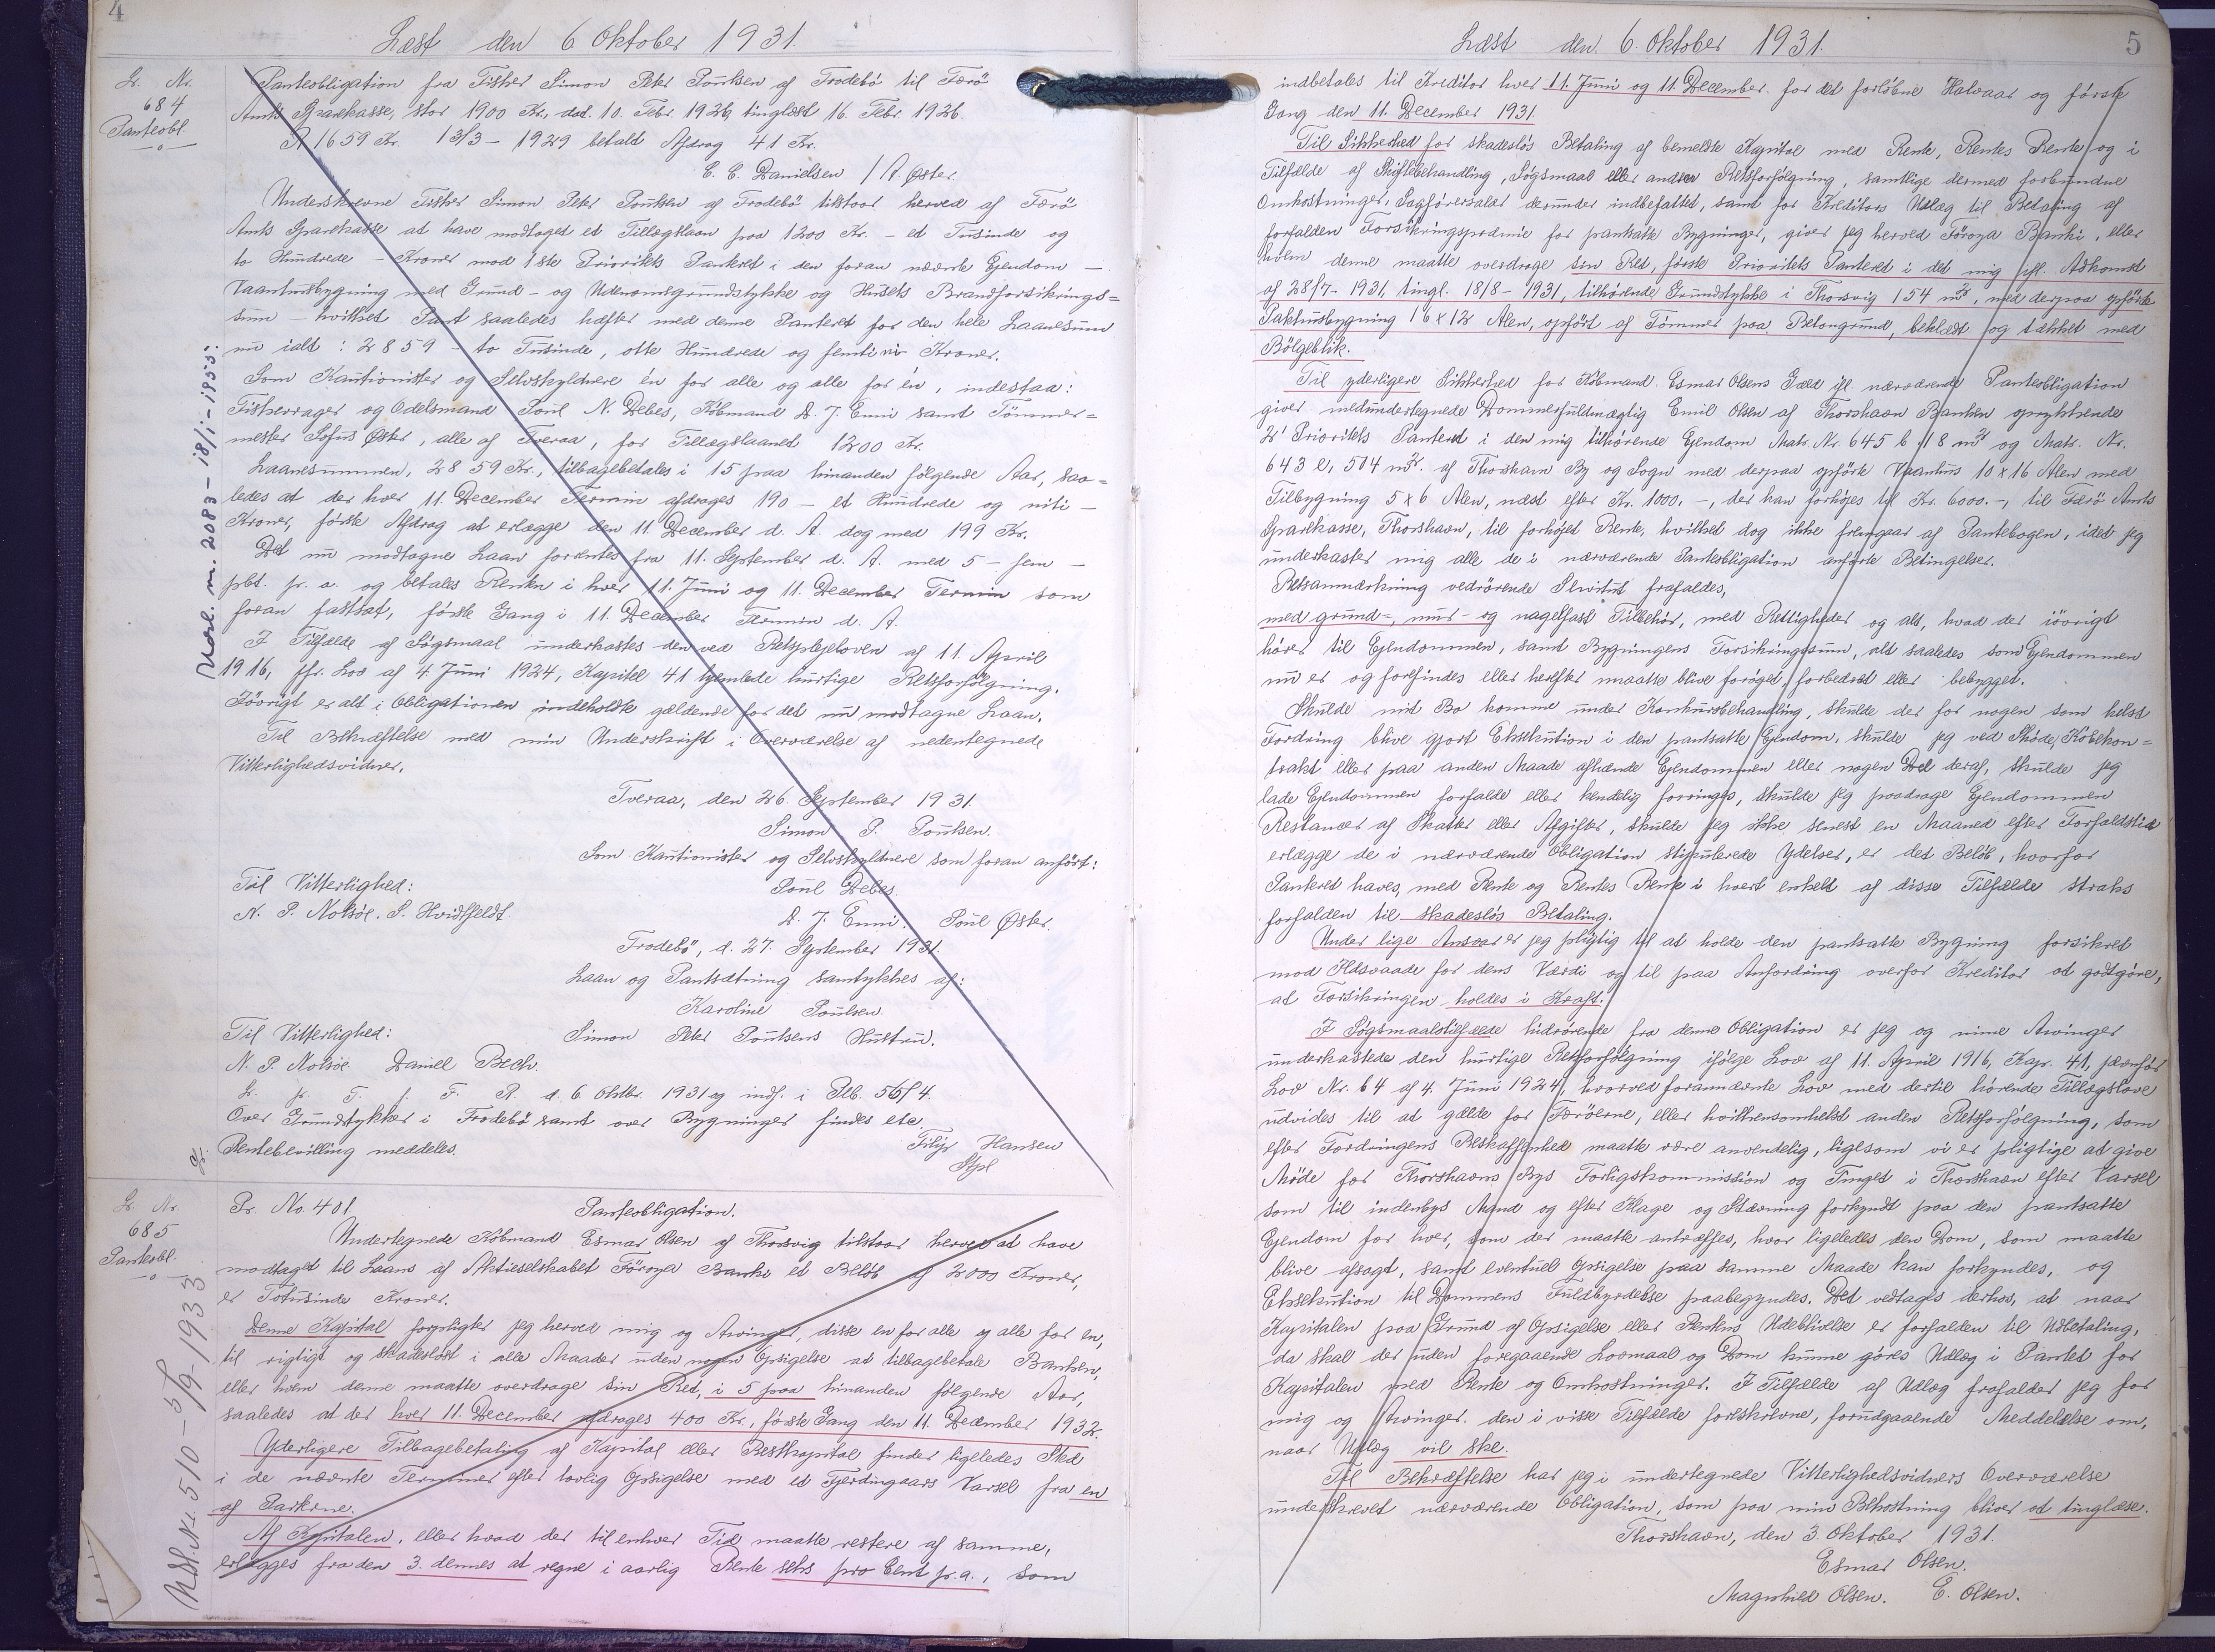 4
Læst den 6 Oktober 1931.
Lr. Nr.
684
Panteobl.
Panteobligation fra Fisker Simon Peter Poulsen af Frodebø til Færø
Amts Sparekasse, stor 1900 Kr., dat. 10. Febr. 1926, tinglæst 16. Febr. 1926.
R 1659 Kr. 13/3 - 1929 betalt Afdrag 41 Kr.
C. C. Danielsen / A. Øster.
Underskrevne Fisker Simon Peter Poulsen af Frodebø tilstaar herved af Færø
Amts Sparekasse at have modtaget et Tillægslaan paa 1200 Kr. - et Tusinde og
to Hundrede - Kroner mod 1ste Prioritets Panteret i den foran nævnte Ejendom -
Vaaningsbygning med Grund- og Udenomsgrundstykke og Husets Brandforsikrings=
sum - hvilket Pant saaledes hæfter med denne Panteret for den hele Laanesum
nu ialt: 2859 - to Tusinde, otte Hundrede og femti ni Kroner.
Som Kautionister og Selvskyldnere én for alle og alle for én, indestaa:
Fiskevrager og Odelsmand Poul N. Debes, Købmand D. J. Enni samt Tømmer=
mester Sofus Øster, alle af Tveraa, for Tillægslaanet 1200 Kr.
Laanesummen, 2859 Kr., tilbagebetales i 15 paa hinanden følgende Aar, saa=
ledes at der hver 11. December Termin afdrages 190 - et Hundrede og niti -
Kroner, første Afdrag at erlægge den 11 December d. A. dog med 199 Kr.
Det nu modtagne Laan forrentes fra 11. September d. A. med 5 - fem -
pct. p. a. og betales Renten i hver 11. Juni og 11. December Termin som
foran fastsat, første Gang i 11. December Termin d. A.
I Tilfælde af Søgsmaal underkastes den ved Retsplejeloven af 11. April
1916, jfr. Lov af 4 Juni 1924, Kapitel 41 hjemlede hurtige Retsforfølgning.
Iøvrigt er alt i Obligationen indeholdte gældende for det nu modtagne Laan.
Til Bekræftelse med min Underskrift i Overværelse af nedentegnede
Vitterlighedsvidner.
Tveraa, den 26. September 1931.
Simon P. Poulsen.
Som Kautionister og Selvskyldnere som foran anført:
Til Vitterlighed: Poul Debes.
N. P. Nolsøe. S. Hvidtfeldt. D. J. Enni. Poul Øster.
Frodebø, d. 27. September 1931.
Laan og Pantsætning samtykkes af:
Karoline Poulsen.
Til Vitterlighed: Simon Peter Poulsens Hustru.
N. P. Nolsøe. Daniel Bech.
L. p. T. f. F. R. d. 6 Oktbr. 1931 og indf. i Ptb. 56 f 4.
Over Grundstykker i Frodebø samt over Bygninger findes etc.
Rentebevilling meddeles.
Filip Hansen
Stpl
Udsl. m. 2083 - 18/1 - 1955:
Lr. Nr.
685
Panteobl.
Pr. No. 401. Panteobligation.
Undertegnede Købmand Esmar Olsen af Thorsvig tilstaar herved at have
modtaget til Laans af Aktieselskabet Föroya Banki et Beløb af 2000 Kroner,
er Totusinde Kroner.
Denne Kapital forpligter jeg herved mig og Arvinger, disse en for alle og alle for en,
til rigtigt og skadesløst i alle Maader uden nogen Opsigelse at tilbagebetale Banken,
eller hvem denne maatte overdrage sin Ret, i 5 paa hinanden følgende Aar,
saaledes at der hver 11. December afdrages 400 Kr., første Gang den 11. December 1932.
Yderligere Tilbagebetaling af Kapital eller Restkapital finder ligeledes Sted
i de nævnte Terminer efter lovlig Opsigelse med et Fjerdingaars Varsel fra en
af Parterne.
Af Kapitalen, eller hvad der til enhver Tid maatte restere af samme,
erlægges fra den 3. dennes at regne i aarlig Rente seks pro Cent p. a., som
Udsl. N: 510 - 5/9 - 1933
5
Læst den 6. Oktober 1931.
indbetales til Kreditor hver 11. Juni og 11. December for det forløbne Halvaar og første
Gang den 11. December 1931.
Til Sikkerhed for skadesløs Betaling af bemeldte Kapital med Rente, Rentes Rente og i
Tilfælde af Skiftebehandling, Søgsmaal eller anden Retsforfølgning, samtlige dermed forbundne
Omkostninger, Sagførersalær derunder indbefattet, samt for Kreditors Udlæg til Betaling af
forfalden Forsikringspræmie for pantsatte Bygninger, giver jeg herved Föroya Banki, eller
hvem denne maatte overdrage sin Ret, første Prioritets Panteret i det mig ifl. Adkomst
af 28/7 - 1931, tingl. 18/8 - 1931, tilhørende Grundstykke i Thorsvig 154 m², med derpaa opførte
Pakhusbygning 16 x 12 Alen, opført af Tømmer paa Betongrund, beklædt og tækket med
Bølgeblik.
Til yderligere Sikkerhed for Købmand Esmar Olsens Gæld ifl. nærværende Panteobligation
giver medundertegnede Dommerfuldmægtig Emil Olsen af Thorshavn Banken oprykkende
2' Prioritets Panteret i den mig tilhørende Ejendom Matr. Nr. 645 b 118 m² og Matr. Nr.
643 e, 504 m². af Thorshavn By og Sogn med derpaa opførte Vaanhus 10 x 16 Alen med
Tilbygning 5 x 6 Alen, næst efter Kr. 1000.-, der kan forhøjes til Kr. 6000.-, til Færø Amts
Sparekasse, Thorshavn, til forhøjet Rente, hvilket dog ikke fremgaar af Pantebogen, idet jeg
underkaster mig alle de i nærværende Panteobligation anførte Betingelser.
Retsanmærkning vedrørende Servitut frafaldes,
med grund-, mur- og nagelfast Tilbehør, med Rettigheder og alt, hvad der iøvrigt
hører til Ejendommen, samt Bygningens Forsikringssum, alt saaledes som Ejendommen
nu er og forefindes eller herefter maatte blive forøget, forbedret eller bebygget.
Skulde mit Bo komme under Konkursbehandling, skulde der for nogen som helst
Fordring blive gjort Eksekution i den pantsatte Ejendom, skulde jeg ved Skøde, Købekon=
trakt eller paa anden Maade afhænde Ejendommen eller nogen Del deraf, skulde jeg
lade Ejendommen forfalde eller kendelig forringes, skulde jeg paadrage Ejendommen
Restancer af Skatter eller Afgifter, skulde jeg ikke senest en Maaned efter Forfaldstid
erlægge de i nærværende Obligation stipulerede Ydelser, er det Beløb, hvorfor
Panteret haves, med Rente og Rentes Rente i hvert enkelt af disse Tilfælde straks
forfalden til skadesløs Betaling.
Under lige Ansvar er jeg pligtig til at holde den pantsatte Bygning forsikret
mod Ildsvaade for dens Værdi og til paa Anfordring overfor Kreditor at godtgøre,
at Forsikringen holdes i Kraft.
I Søgsmaalstilfælde hidrørende fra denne Obligation er jeg og mine Arvinger
underkastede den hurtige Retsforfølgning ifølge Lov af 11. April 1916, Kap. 41, jævnfør
Lov Nr. 64 af 4. Juni 1924, hvorved forannævnte Lov med dertil hørende Tillægslove
udvides til at gælde for Færøerne, eller hvilkensomhelst anden Retsforfølgning, som
efter Fordringens Beskaffenhed maatte være anvendelig, ligesom vi er pligtige at give
Møde for Thorshavns Bys Forligskommission og Tinget i Thorshavn efter Varsel
som til indenbys Mand og efter Klage og Stævning forkyndt paa den pantsatte
Ejendom for hver, som der maatte antræffes, hvor ligeledes den Dom, som maatte
blive afsagt, samt eventuel Opsigelse paa samme Maade kan forkyndes, og
Eksekution til Dommens Fuldbyrdelse paabegyndes. Det vedtages derhos, at naar
Kapitalen paa Grund af Opsigelse eller Rentens Udeblivelse er forfalden til Udbetaling,
da skal der uden foregaaende Lovmaal og Dom kunne gøres Udlæg i Pantet for
Kapitalen med Rente og Omkostninger. I Tilfælde af Udlæg frafalder jeg for
mig og Arvinger den i visse Tilfælde foreskrevne, forudgaaende Meddelelse om,
naar Udlæg vil ske.
Til Bekræftelse har jeg i undertegnede Vitterlighedsvidners Overværelse
underskrevet nærværende Obligation, som paa min Bekostning bliver at tinglæse.
Thorshavn, den 3. Oktober 1931.
Esmar Olsen.
Magnhild Olsen. E. Olsen.